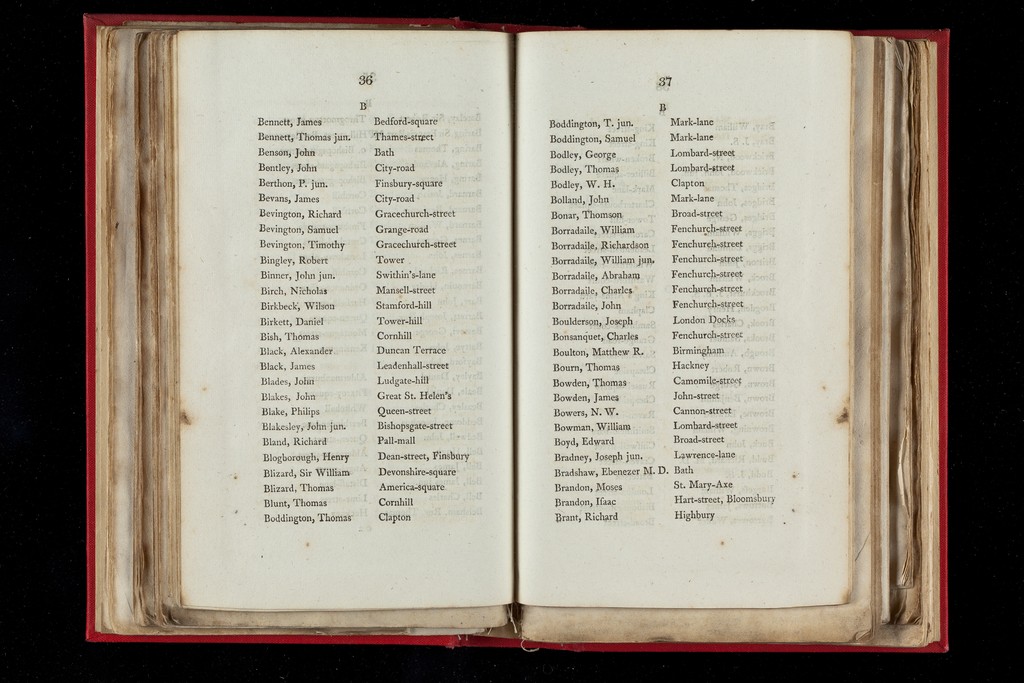 36
B
Bennett, James Bedford-square
Bennett, Thomas jun. Thames-street
Benson, John Bath
Bentley, John City-road
Berthon, P. jun. Finsbury-square
Bevans, James City-road
Bevington, Richard Gracechurch-street
Bevington, Samuel Grange-road
Bevington, Timothy Gracechurch-street
Bingley, Robert Tower
Binner, John jun. Swithin's-lane
Birch, Nicholas Mansell-street
Birkbeck, Wilson Stamford-hill
Birkett, Daniel Tower-hill
Bish, Thomas Cornhill
Black, Alexander Duncan Terrace
Black, James Leadenhall-street
Blades, John Ludgate-hill
Blakes, John Great St. Helen's
Blake, Philips Queen-street
Blakesley, John jun. Bishopsgate-street
Bland, Richard Pall-mall
Blogborough, Henry Dean-street, Finsbury
Blizard, Sir William Devonshire-square
Blizard, Thomas America-square
Blunt, Thomas Cornhill
Boddington, Thomas Clapton
37
B
Boddington, T. jun. Mark-lane
Boddington, Samuel Mark-lane
Bodley, George Lombard-street
Bodley, Thomas Lombard-street
Bodley, W. H. Clapton
Bolland, John Mark-lane
Bonar, Thomson Broad-street
Borradaile, William Fenchurch-street
Borradaile, Richardson Fenchurch-street
Borradaile, William jun. Fenchurch-street
Borradaile, Abraham Fenchurch-street
Borradaile, Charles Fenchurch-street
Borradaile, John Fenchurch-street
Boulderson, Joseph London Docks
Bonsanquet, Charles Fenchurch-street
Boulton, Matthew R. Birmingham
Bourn, Thomas Hackney
Bowden, Thomas Camomile-street
Bowden, James John-street
Bowers, N. W. Cannon-street
Bowman, William Lombard-street
Boyd, Edward Broad-street
Bradney, Joseph jun. Lawrence-lane
Bradshaw, Ebenezer M. D. Bath
Brandon, Moses St. Mary-Axe
Brandon, Iſaac Hart-street, Bloomsbury
Brant, Richard Highbury